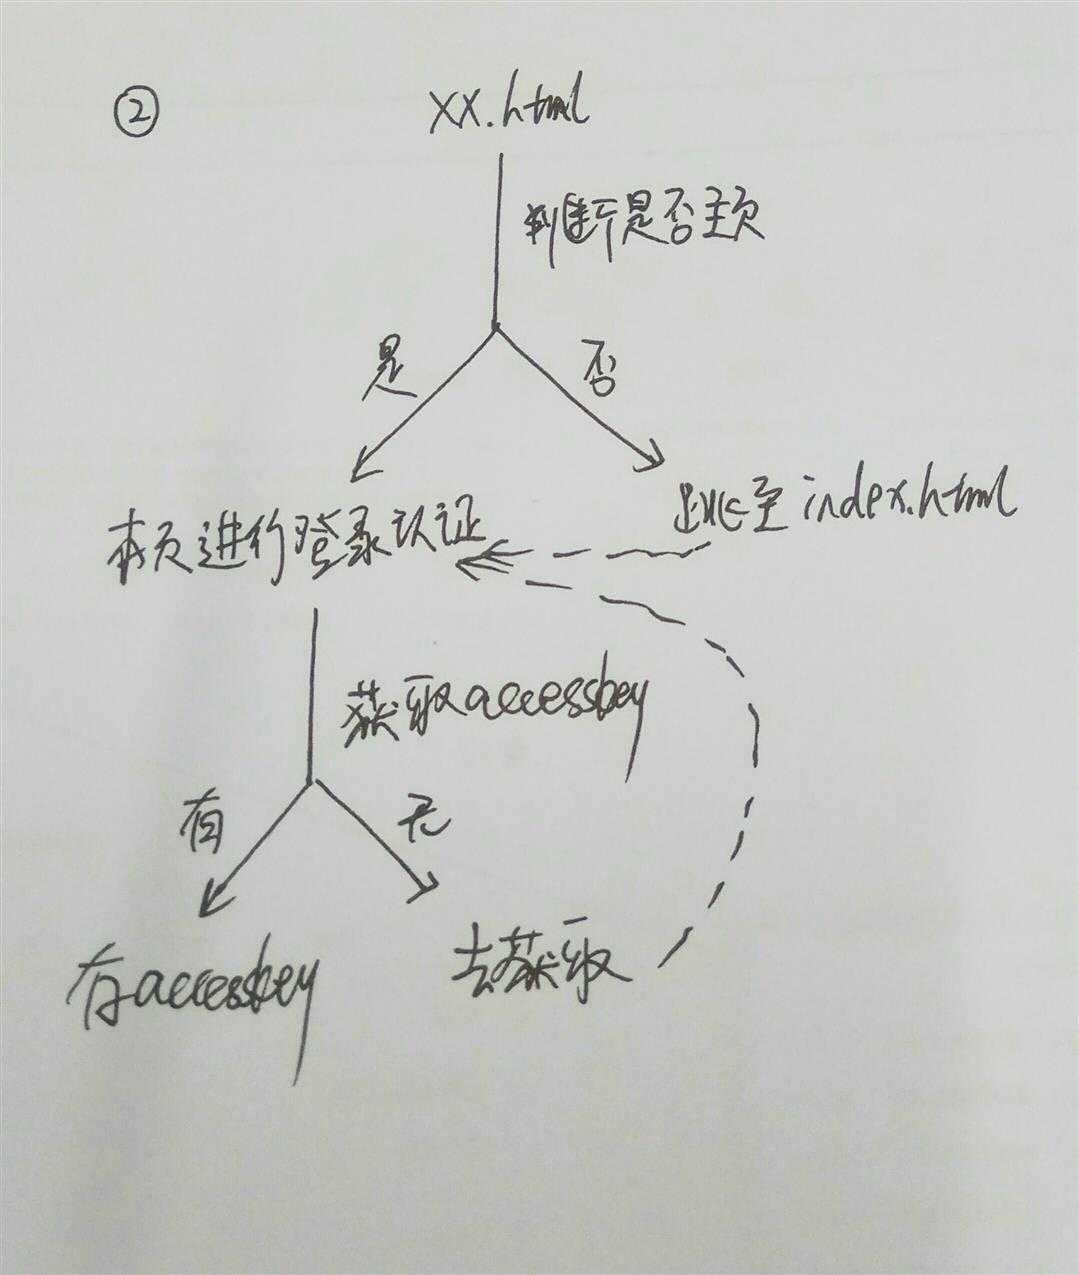 ②
xx.html
判断是否主页
是
否
本页进行登录认证
跳至index.html
获取accesskey
有
无
存accesskey
去获取